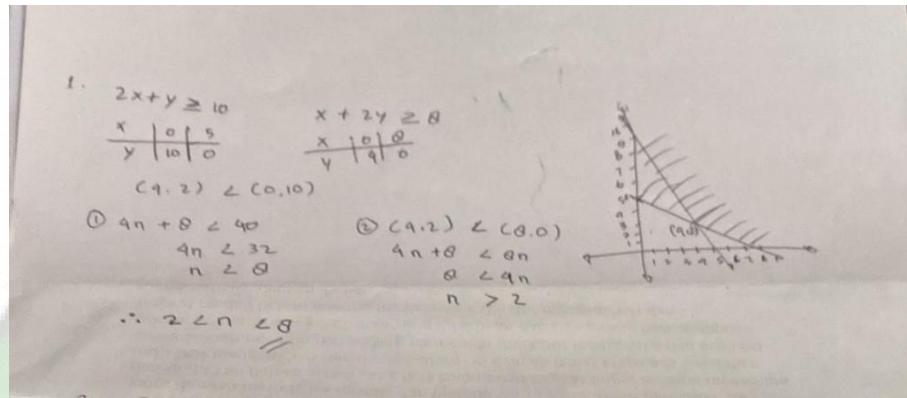 1.
2x + y ≥ 10
x | 0 | 5
y | 10 | 0
x + 2y ≥ 8
x | 0 | 8
y | 4 | 0
(4.2) < (0,10)
① 4n + 8 < 40
4n < 32
n < 8
② (4.2) < (8.0)
4n + 8 < 8n
8 < 4n
n > 2
∴ 2 < n < 8